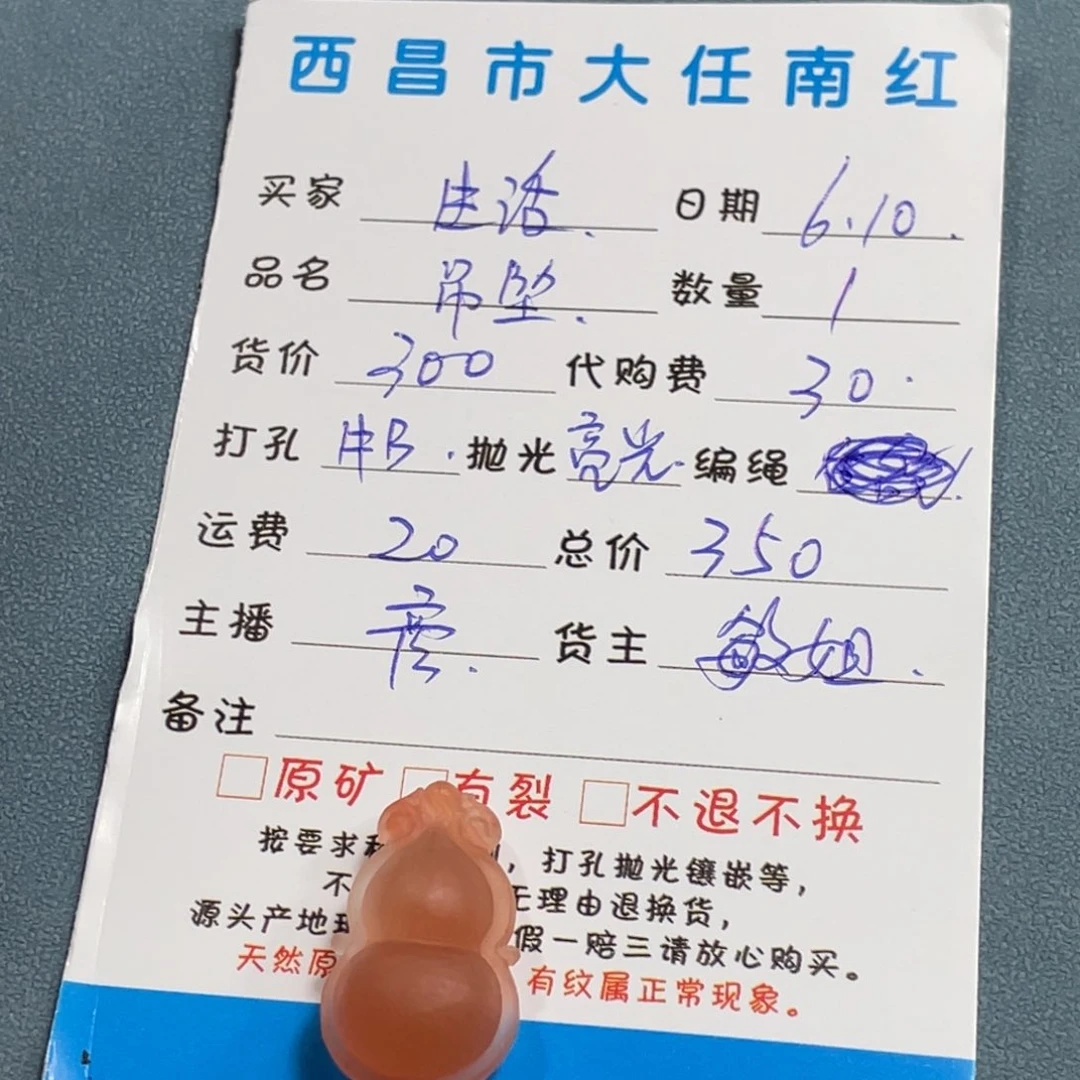 西昌市大任南红
买家 生活. 日期 6.10.
品名 吊坠. 数量 1
货价 300 代购费 30.
打孔 牛B. 抛光 亮光. 编绳
运费 20 总价 350
主播 云. 货主 敏姐.
备注
□原矿 □有裂 □不退不换
按要求 ，打孔抛光镶嵌等，
不 无理由退换货，
源头产地 假一赔三请放心购买。
天然原 有纹属正常现象。